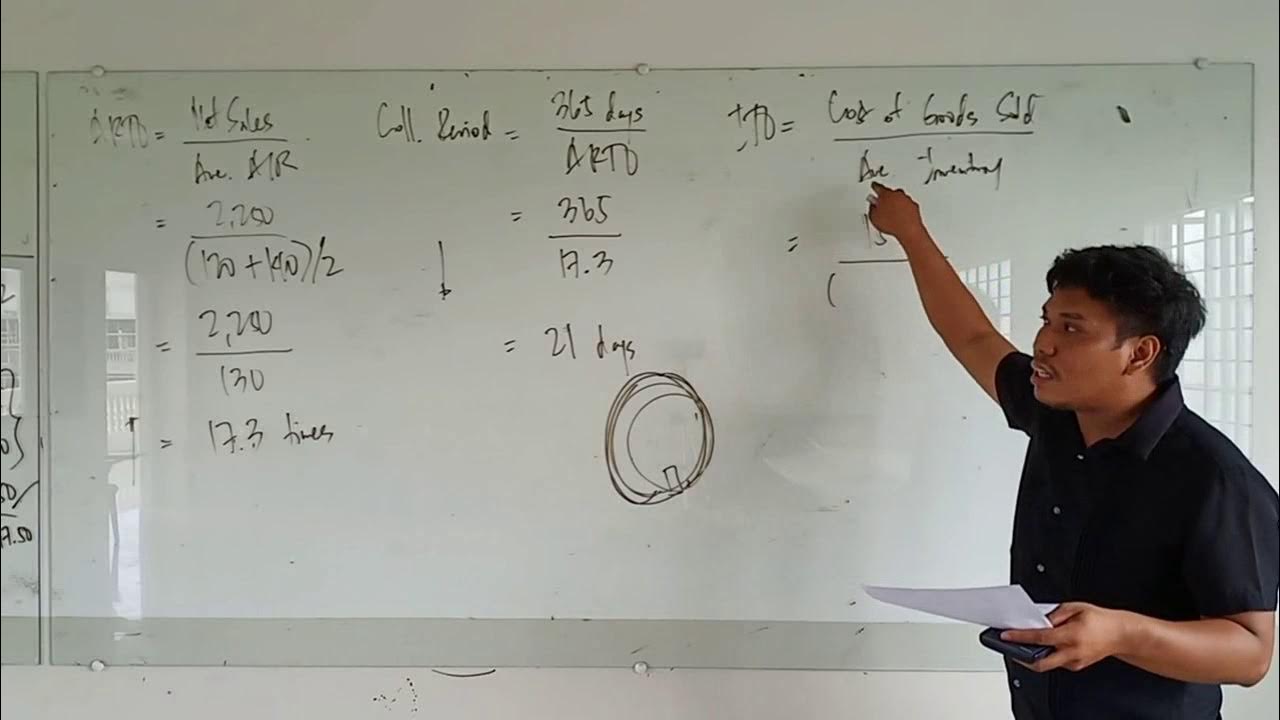 ARTO = Net Sales
Ave. A/R
= 2,250
(120 + 140)/2
= 2,250
130
= 17.3 times
Coll. Period = 365 days
ARTO
= 365
17.3
= 21 days
ITO = Cost of Goods Sold
Ave. Inventory
=
(